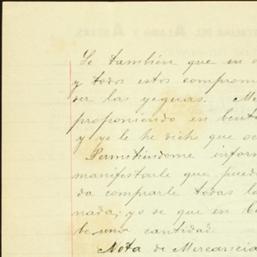 Se tambien que en
y todos estos comprom
ser las yeguas. Me
proponiendo en
y yo le he dicho que
Permitiendome infor
manifestarle que pued
da comprarle todas l
nada; yo se que en
le una cantidad.
Nota de Mercancia